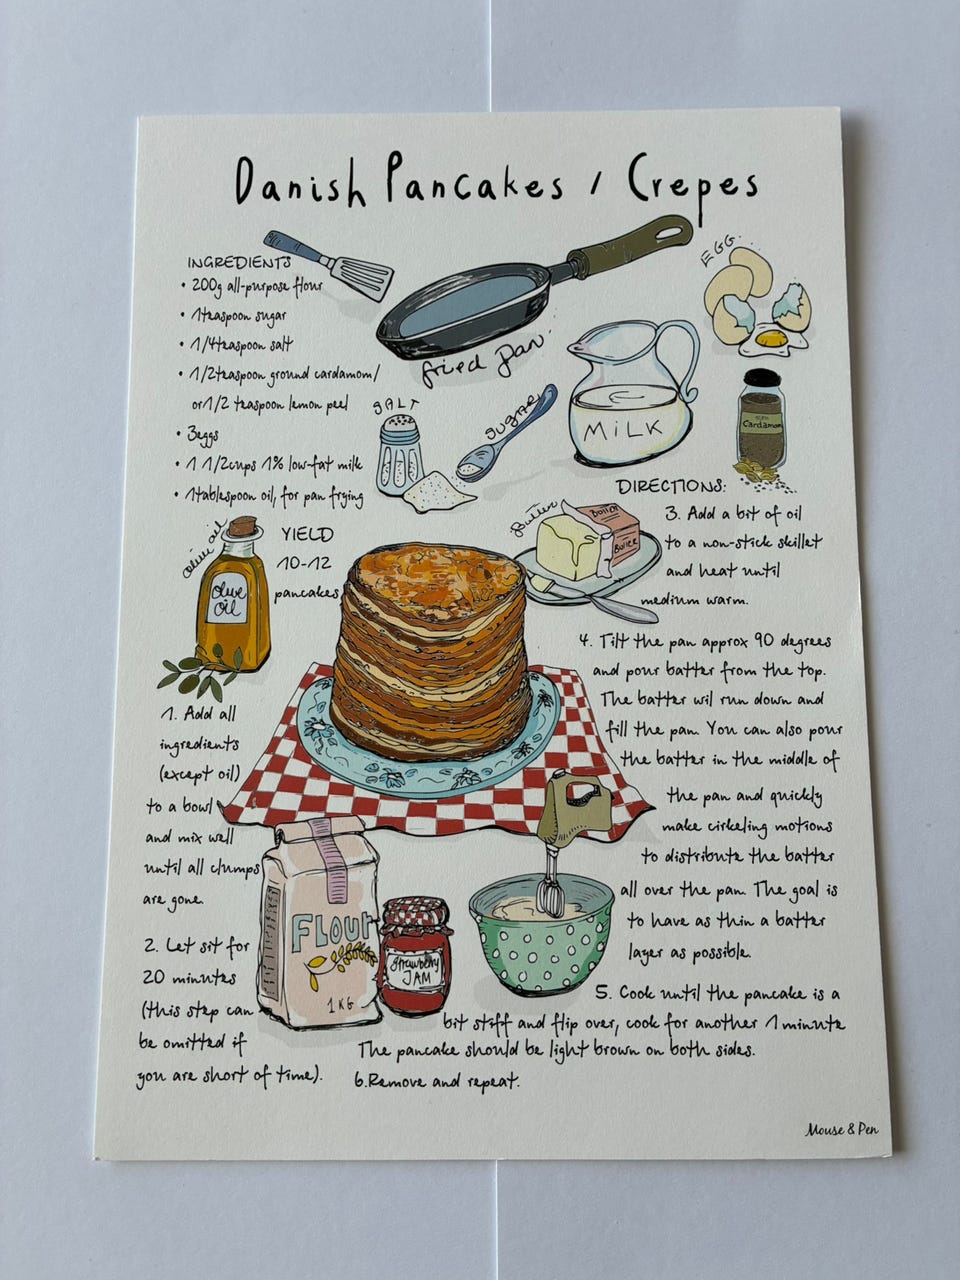 Danish Pancakes / Crepes
INGREDIENTS
• 200g all-purpose flour
• 1teaspoon sugar
• 1/4teaspoon salt
• 1/2teaspoon ground cardamom/
or1/2 teaspoon lemon peel
• 3eggs
• 1 1/2cups 1% low-fat milk
• 1tablespoon oil, for pan frying
fried pan
EGG
SALT
SUGAR
MiLK
Cardamom
olive oil
Olive
OiL
YIELD
10-12
pancakes
Butter
Butter
Butter
1. Add all
ingredients
(except oil)
to a bowl
and mix well
until all clumps
are gone.
2. Let sit for
20 minutes
(this step can
be omitted if
you are short of time).
FLOUR
1KG
Strawberry
JAM
DIRECTIONS:
3. Add a bit of oil
to a non-stick skillet
and heat until
medium warm.
4. Tilt the pan approx 90 degrees
and pour batter from the top.
The batter wil run down and
fill the pan. You can also pour
the batter in the middle of
the pan and quickly
make cirkeling motions
to distribute the batter
all over the pan. The goal is
to have as thin a batter
layer as possible.
5. Cook until the pancake is a
bit stiff and flip over, cook for another 1 minute
The pancake should be light brown on both sides.
6.Remove and repeat.
Mouse & Pen